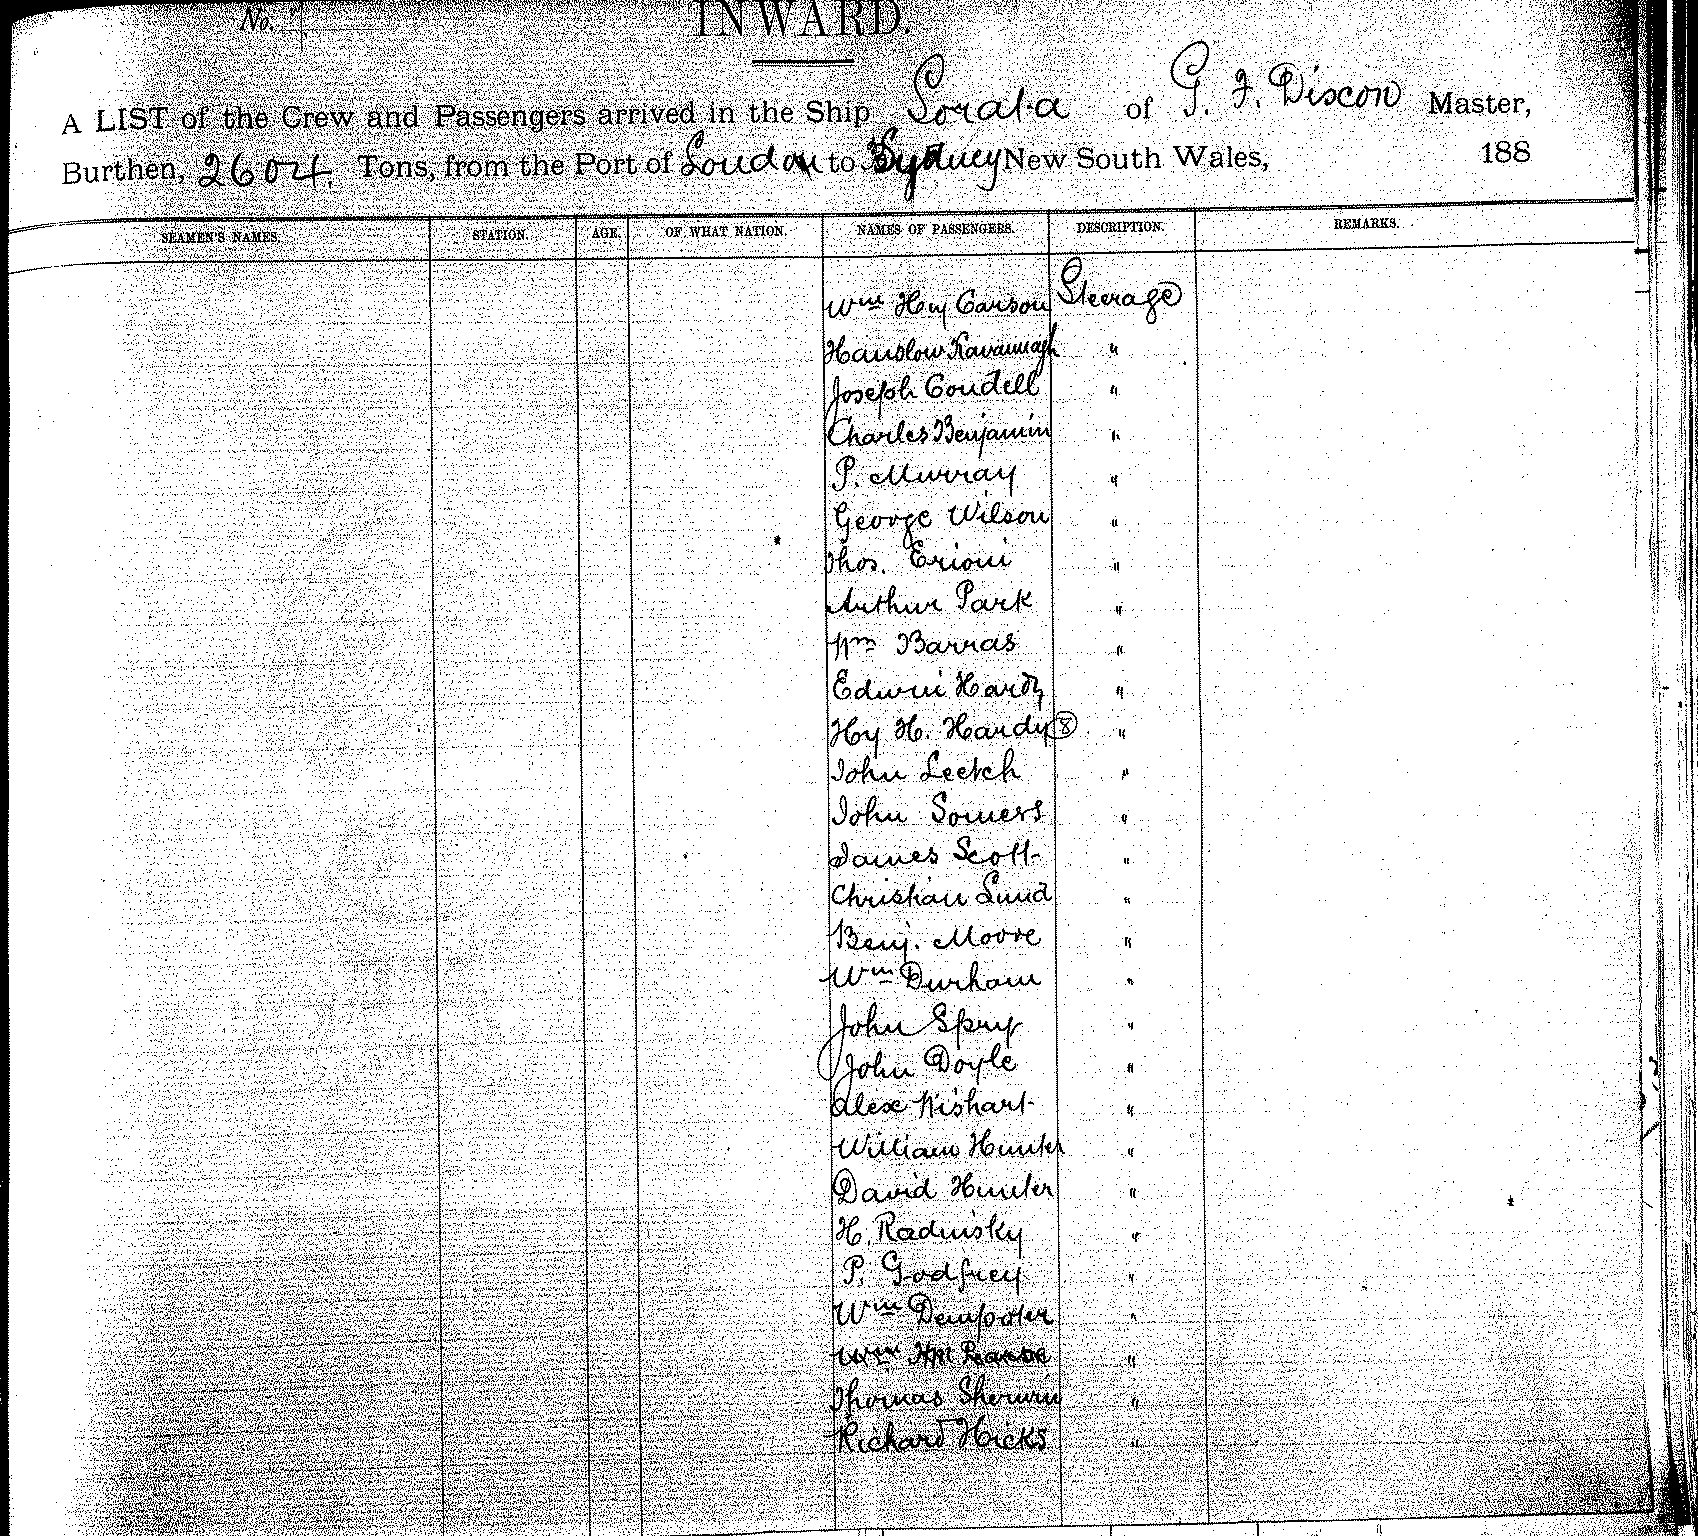 No.
INWARD.
A LIST of the Crew and Passengers arrived in the Ship Sorata of G. F. Dixon Master,
Burthen, 2604 Tons, from the Port of London to Sydney New South Wales, 188
SEAMEN'S NAMES. STATION. AGE. OF WHAT NATION. NAMES OF PASSENGERS. DESCRIPTION. REMARKS.
Wm Hy Carson Steerage
Hanslow Kavannagh "
Joseph Condell "
Charles Benjamin "
P. Murray "
George Wilson "
Thos. "
Arthur Park "
Wm Barras "
Edwin Hardy "
Hy H. Hardy (8) "
John Leetch "
John Somers "
James Scott "
Christian Lund "
Benj. Moore "
Wm Durham "
John Spry "
John Doyle "
Alex Wishart "
William Hunter "
David Hunter "
H. Radinsky "
P. Godfrey "
Wm Dempster "
Wm Pearse "
Thomas Sherwin "
Richard Hicks "